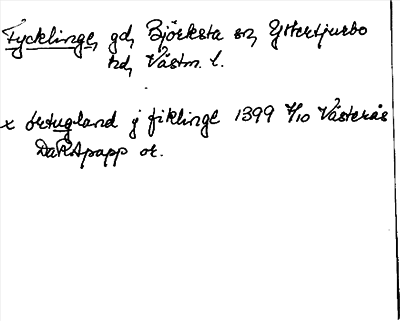 Fycklinge, gd, Björksta sn, Yttertjurbo
hd, Västm. l.
x örtugland j fiklinge 1399 4/10 Västerås
DaRApapp or.